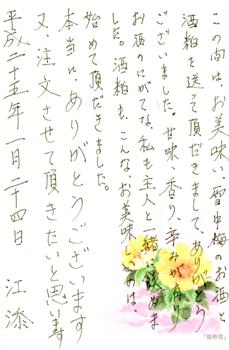 この向は、お美味い、雪中梅のお酒と
酒粕を送って頂だきまして、ありがとう
ございました。甘味、香り、辛みがあり
お酒のにがてな、私も主人と一緒に飲みま
した。酒粕も、こんな、お美味しいのは、
始めて頂だきました。
本当に、ありがとうございます
又、注文させて頂きたいと思います
平成二十五年一月二十四日
江添
「福寿草」